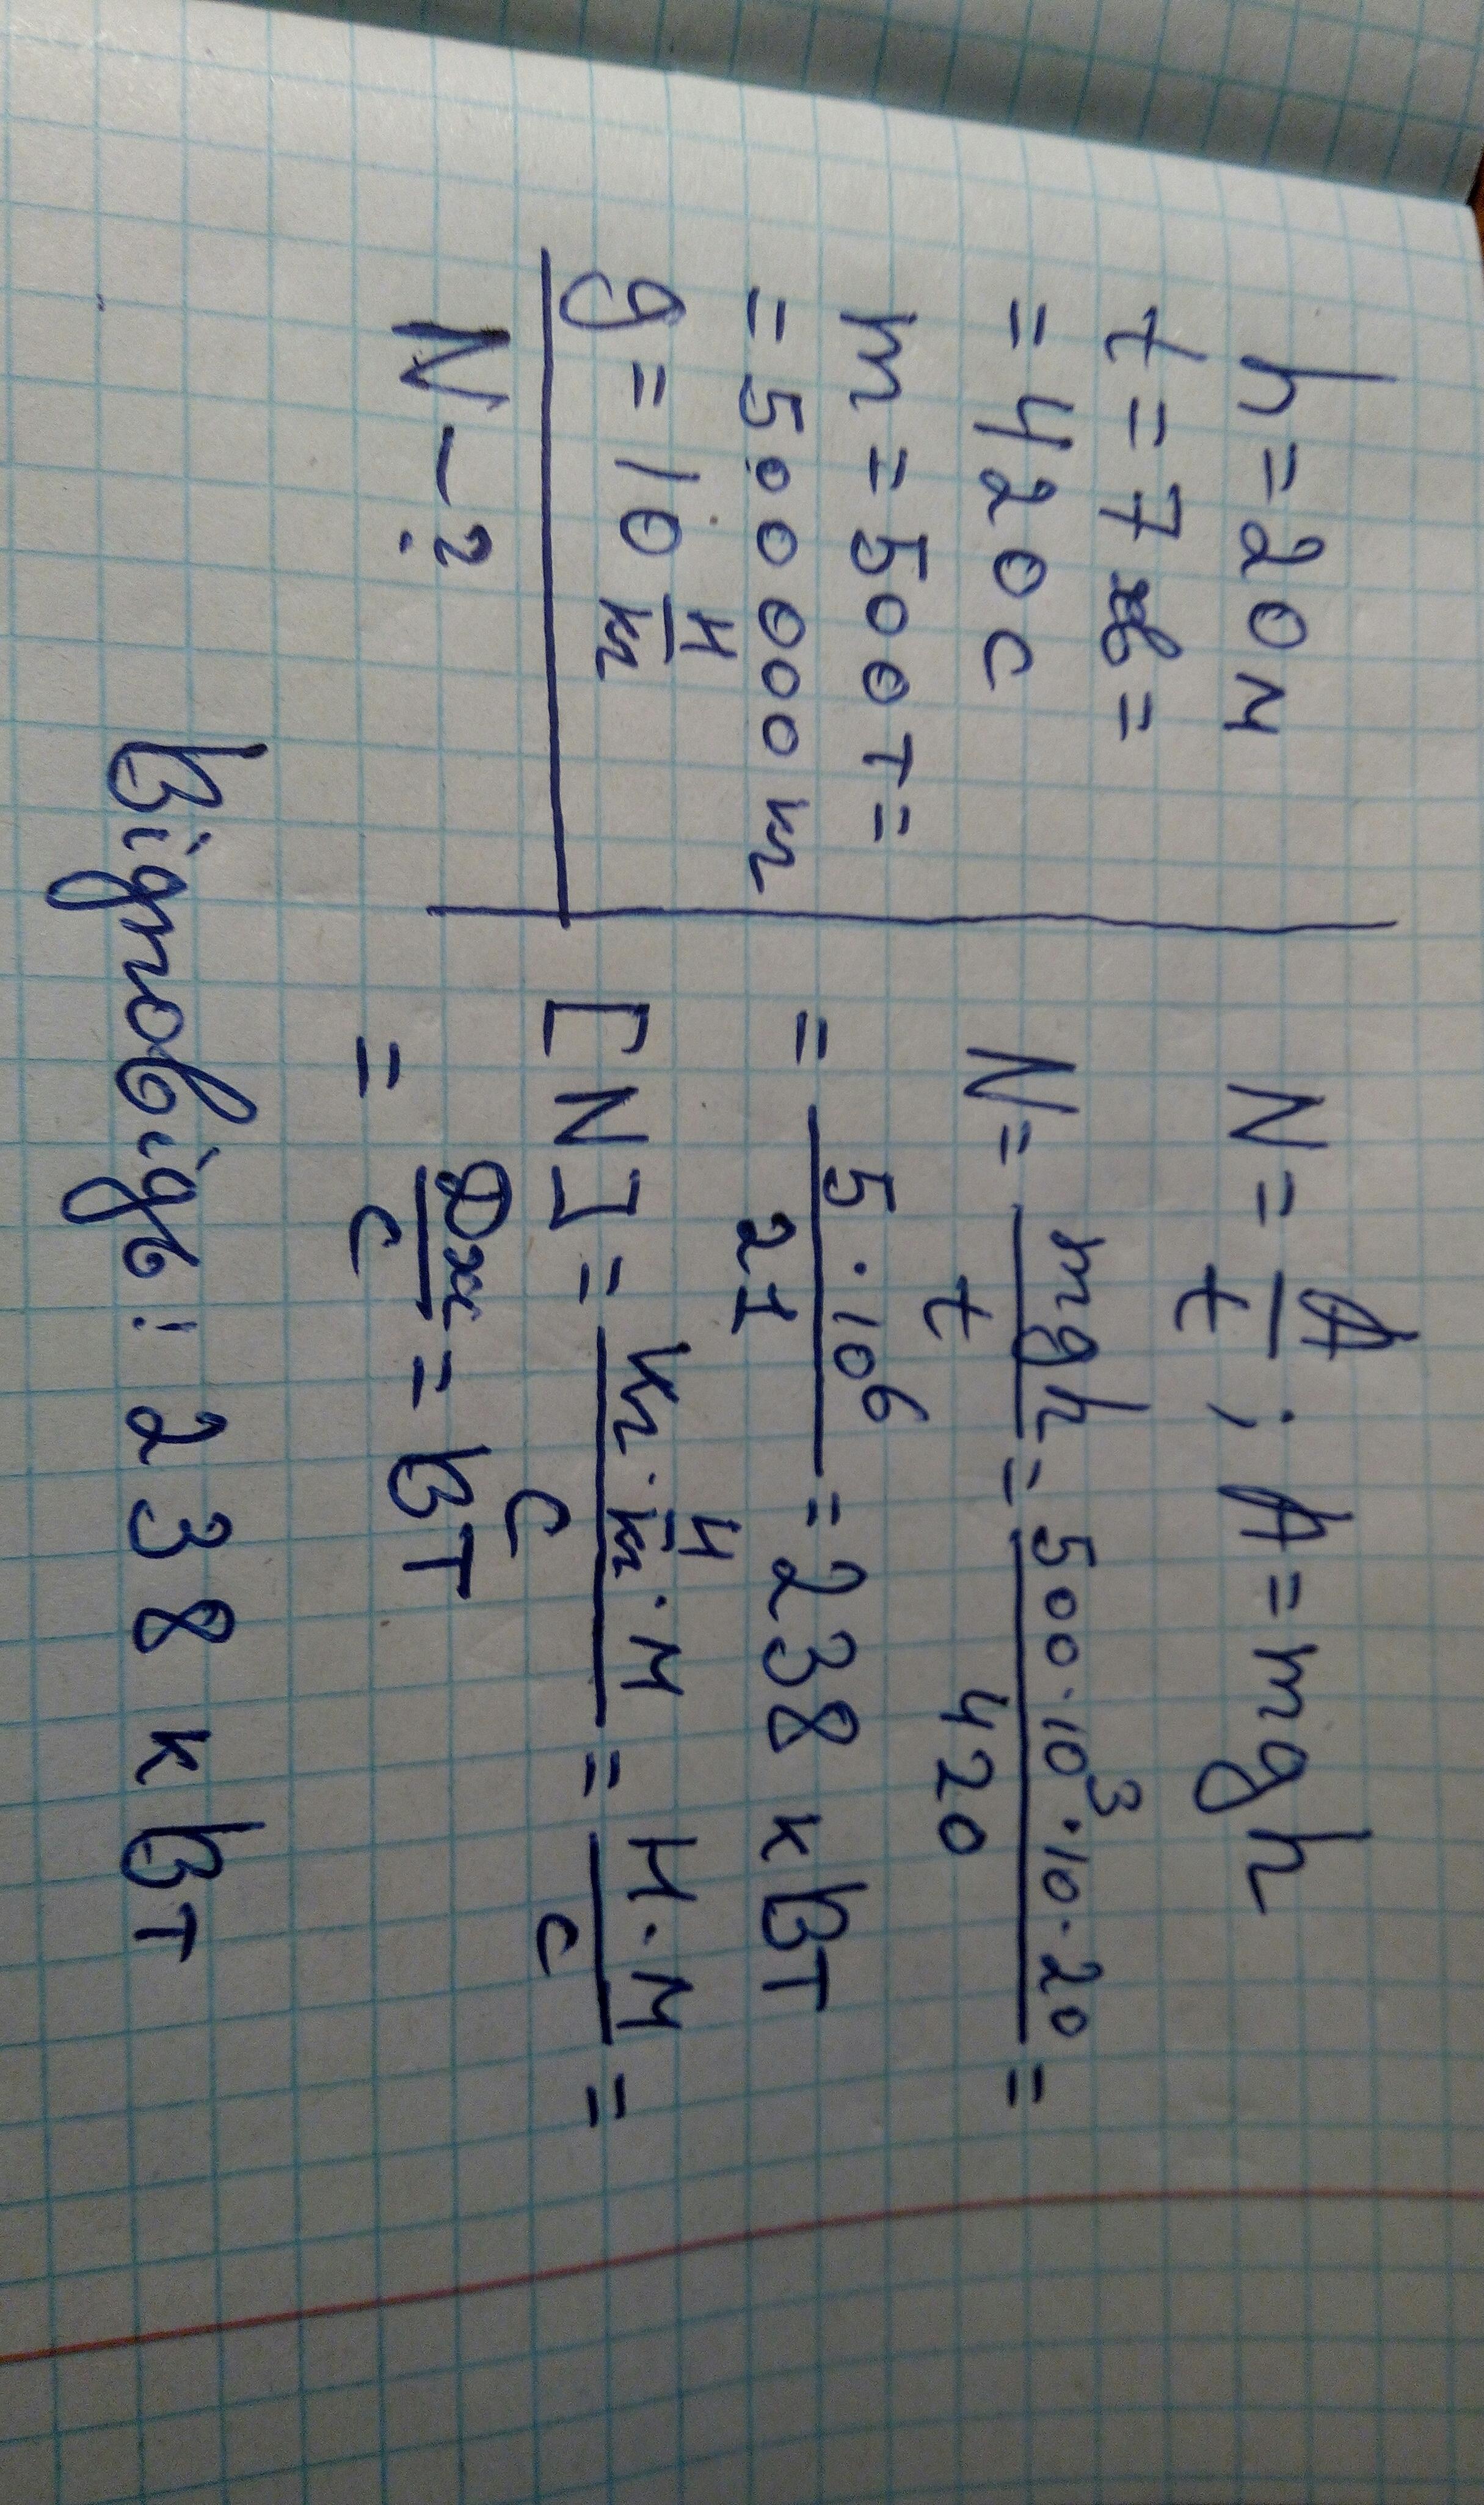 h = 20 м
t = 7 хв =
= 420 с
m = 500 т =
= 500000 кг
g = 10 Н/кг
N - ?
N = A/t ; A = mgh
N = mgh/t = 500·10³·10·20/420 =
= 5·10⁶/21 = 238 кВт
[N] = кг·Н/кг·м/с = Н·м/с =
= Дж/с = Вт
Відповідь: 238 кВт